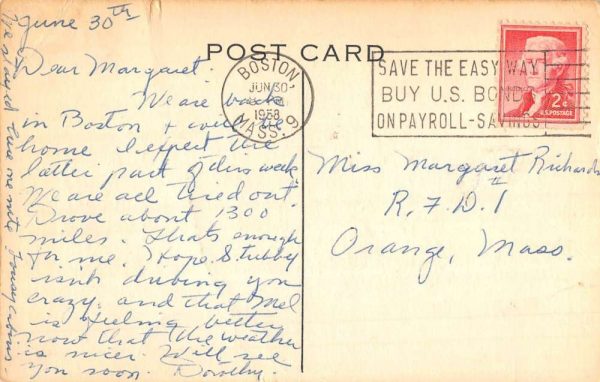 June 30th
POST CARD
Dear Margaret.
We are back
in Boston + will be
home I expect the
latter part of this week.
We are all tired out.
Drove about 1300
miles. Thats enough
for me. Hope Stubby
isn't driving you
crazy and that Mel
is feeling better
now that the weather
is nicer. Will see
you soon. Dorothy.
stayed here one nite
BOSTON,
JUN 30
1958
MASS. 9
SAVE THE EASY WAY
BUY U.S. BONDS
ON PAYROLL-SAVINGS
2¢
U.S. POSTAGE
Miss Margaret Richards
R.F.D. 1
Orange, Mass.